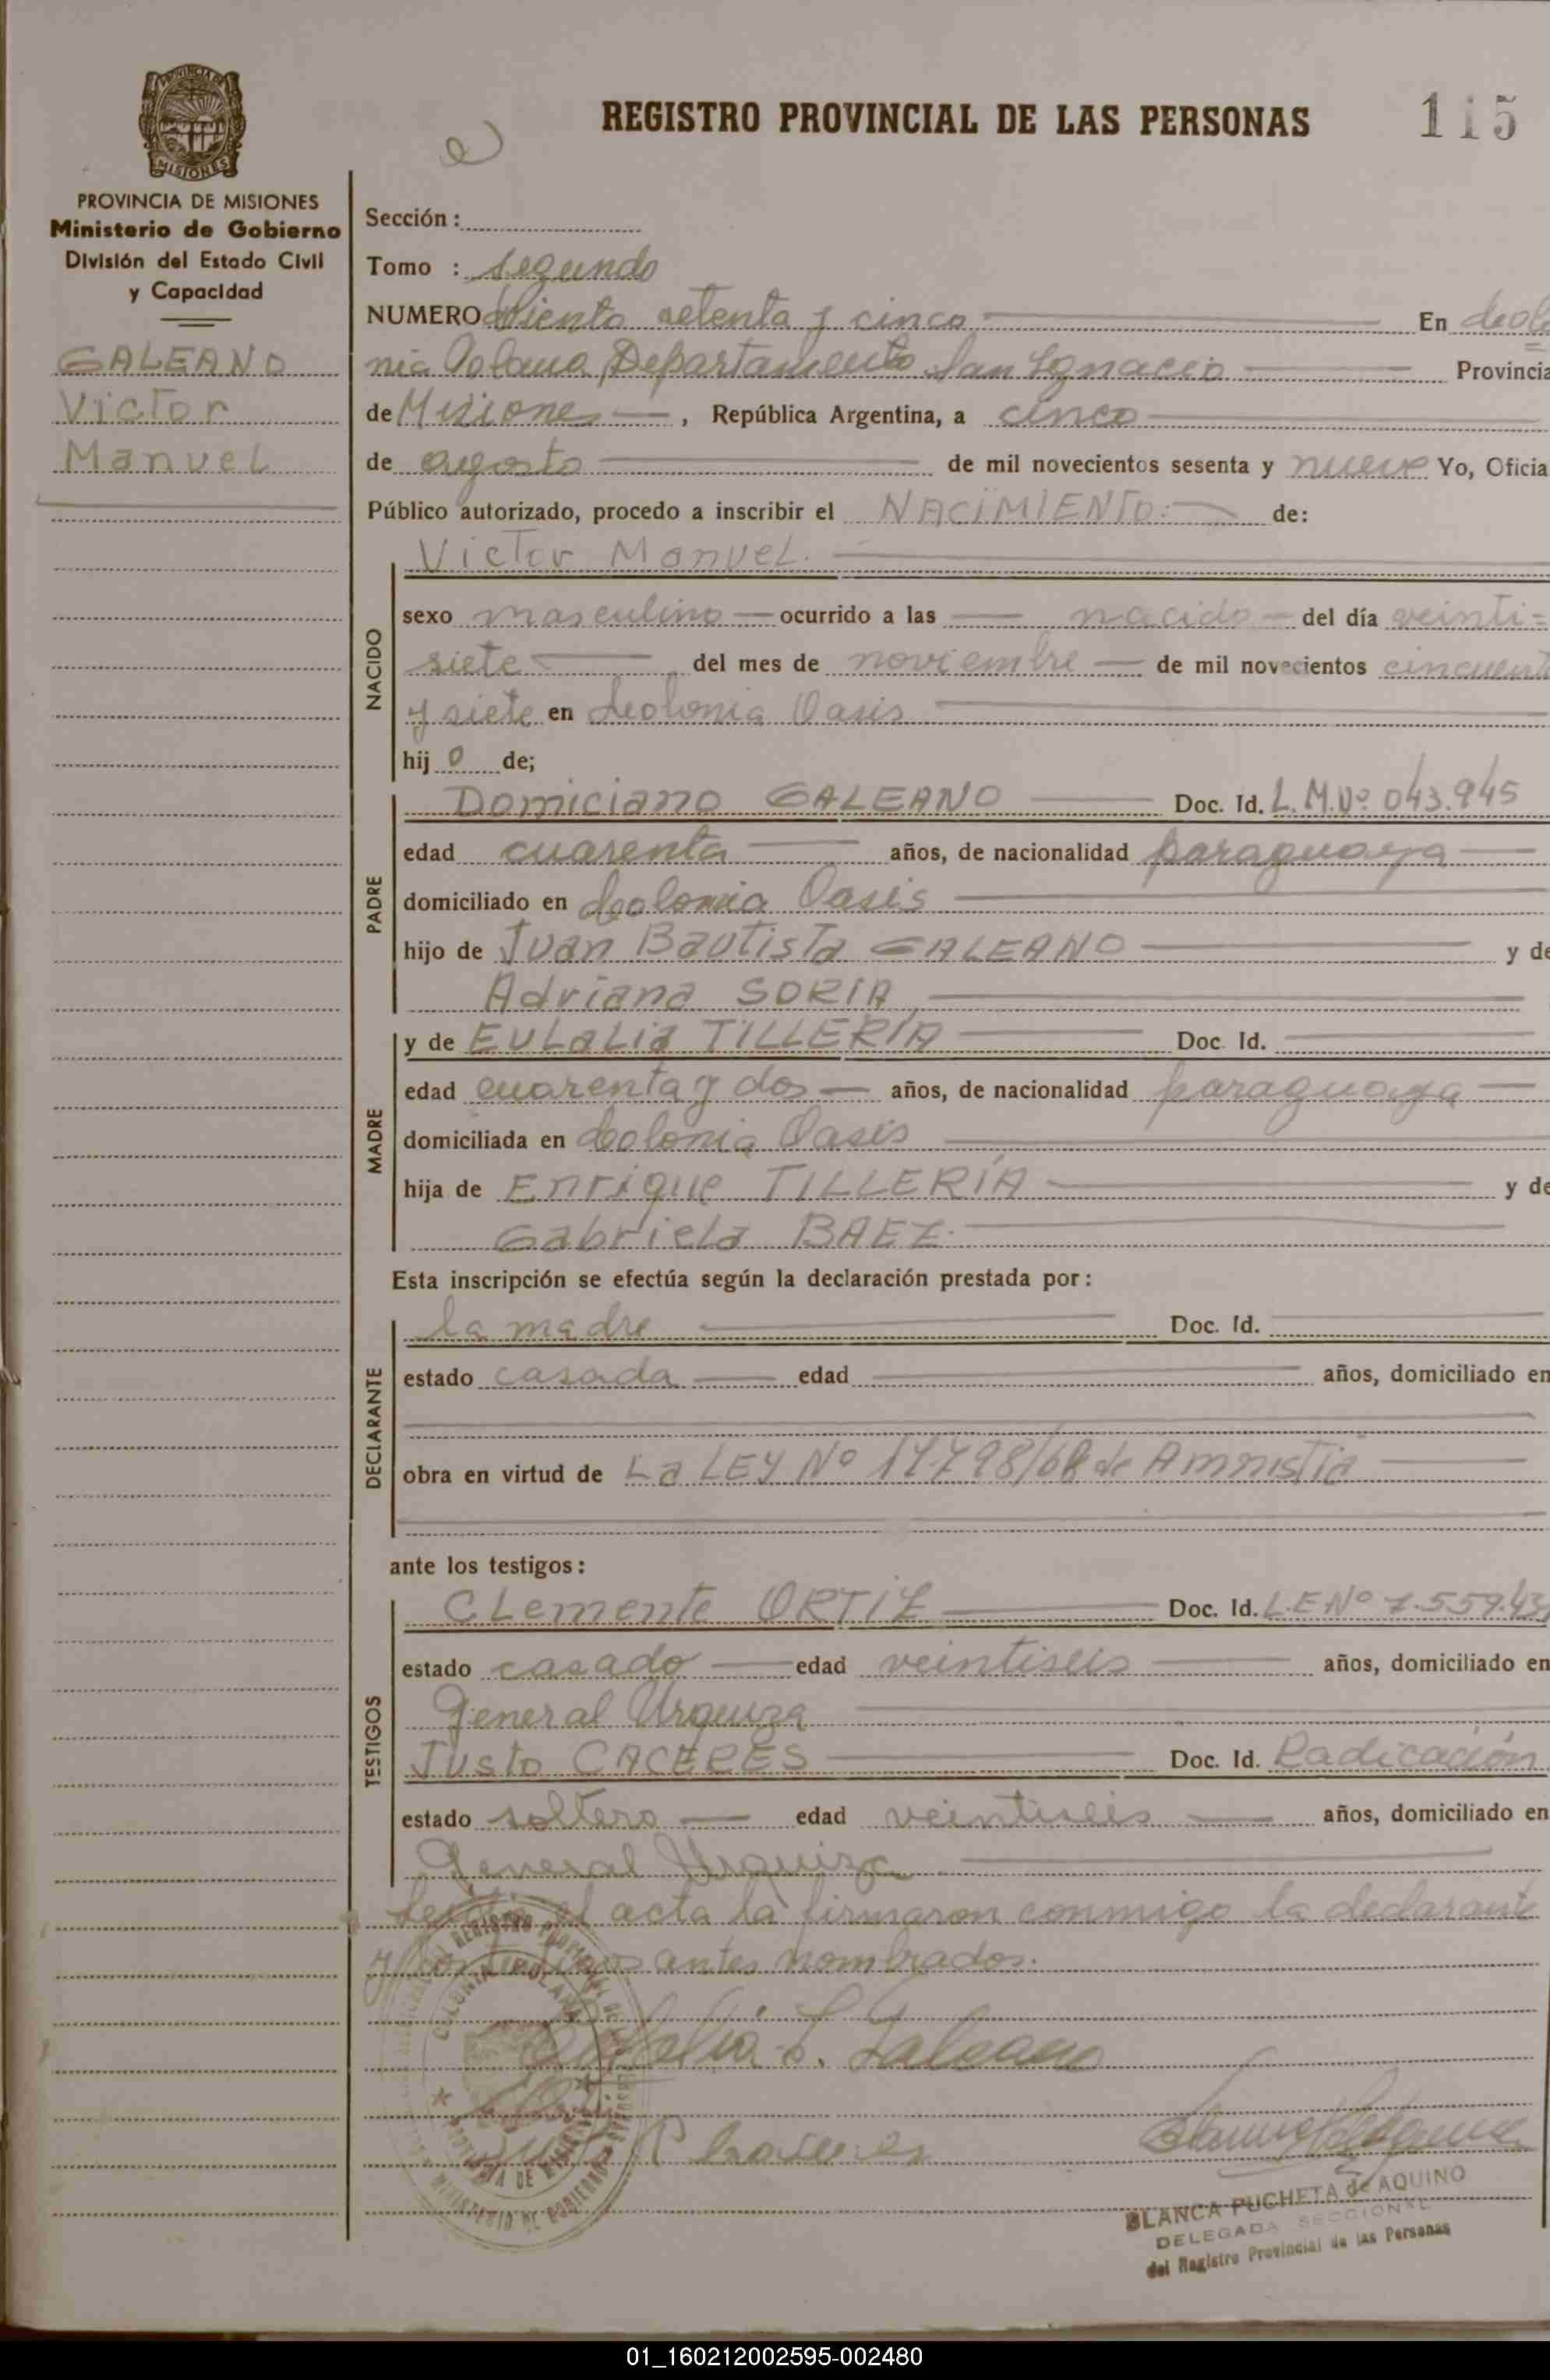 REGISTRO PROVINCIAL DE LAS PERSONAS
115
PROVINCIA DE MISIONES
MISIONES
PROVINCIA DE MISIONES
Ministerio de Gobierno
División del Estado Civil
y Capacidad
GALEANO
Victor
Manuel
Sección :
Tomo : Segundo
NUMERO Ciento setenta y cinco En Colo
nia Polana, Departamento San Ignacio Provincia
de Misiones , República Argentina, a cinco
de agosto de mil novecientos sesenta y nueve Yo, Oficia
Público autorizado, procedo a inscribir el NACIMIENTO. de:
NACIDO
Victor Manuel.
sexo masculino ocurrido a las nacido del día veinti=
siete del mes de noviembre de mil novecientos cincuent
y siete en Colonia Oasis
hij o de;
PADRE
Domiciano GALEANO Doc. Id. L.M.Nº 043.945
edad cuarenta años, de nacionalidad paraguaya
domiciliado en Colonia Oasis
hijo de Juan Bautista GALEANO y de
Adriana SORIA
MADRE
y de EULaLia TILLERÍA Doc. Id.
edad cuarenta y dos años, de nacionalidad paraguaya
domiciliada en Colonia Oasis
hija de Enrique TILLERÍA y de
Gabriela BAEZ.
Esta inscripción se efectúa según la declaración prestada por:
DECLARANTE
la madre Doc. Id.
estado casada edad años, domiciliado en
obra en virtud de La LEY Nº 17.798/68 de Amnistia
ante los testigos:
TESTIGOS
CLemente ORTIZ Doc. Id. L.E Nº 7.559.43
estado casado edad veintiseis años, domiciliado en
General Urquiza
Justo CACERES Doc. Id. Radicación
estado soltero edad veintiseis años, domiciliado en
General Urquiza
el acta la firmaron conmigo la declarante
y antes nombrados.
L. Galeano
BLANCA PUCHETA de AQUINO
DELEGADA SECCIONAL
del Registro Provincial de las Personas
01_160212002595-002480